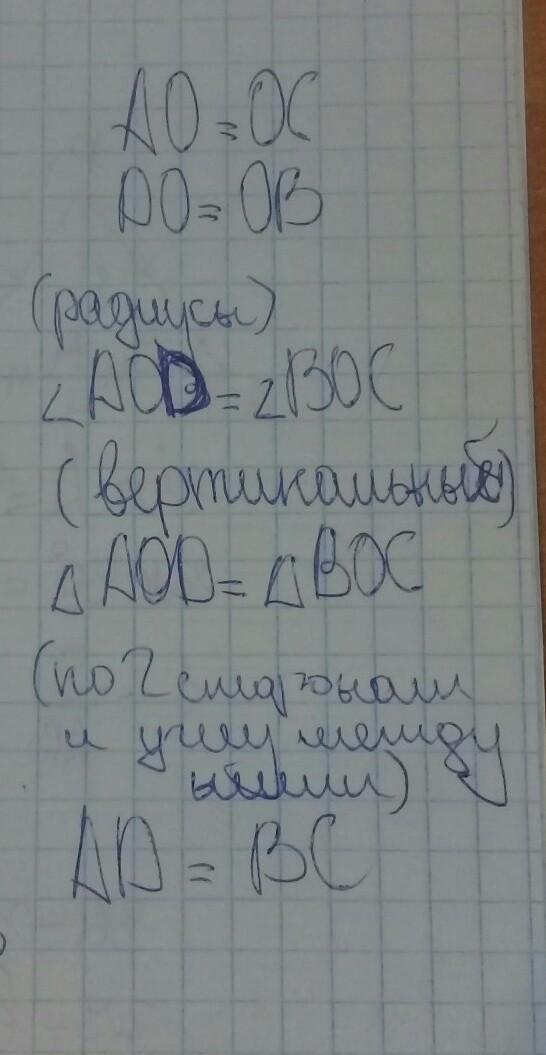 AO = OC
DO = OB
(радиусы)
∠AOD = ∠BOC
(вертикальный)
△AOD = △BOC
(по 2 сторонам
и углу между
ними)
AD = BC